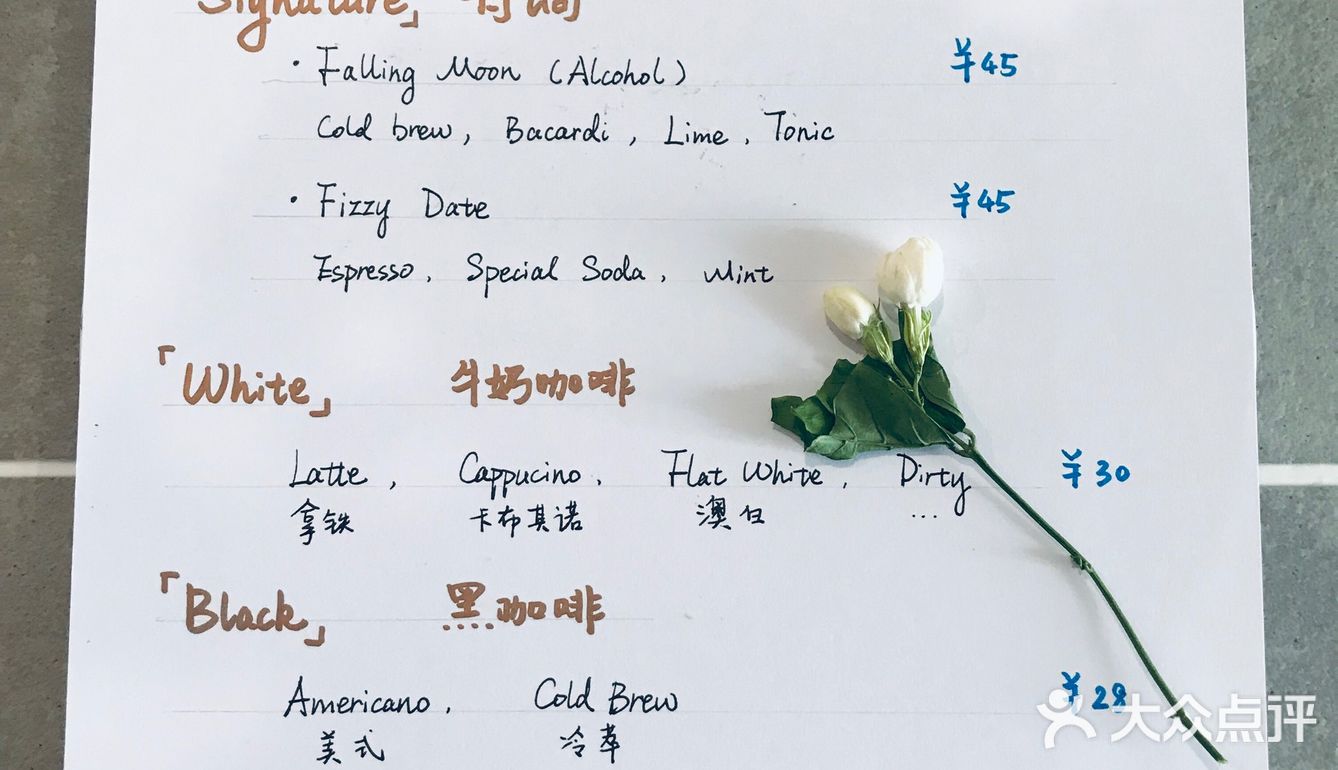 Signature」 特调
· Falling Moon (Alcohol) ¥45
Cold brew, Bacardi, Lime, Tonic
· Fizzy Date ¥45
Espresso, Special Soda, Mint
「White」 牛奶咖啡
Latte, Cappucino, Flat White, Dirty ¥30
拿铁 卡布其诺 澳白 ...
「Black」 黑咖啡
Americano, Cold Brew ¥28
美式 冷萃
大众点评